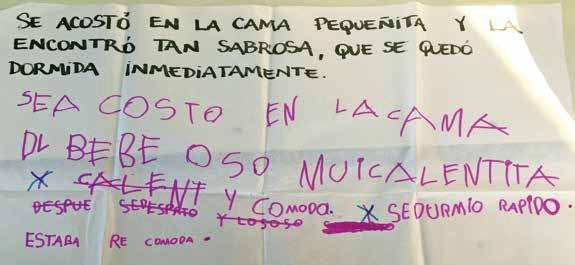 SE ACOSTÓ EN LA CAMA PEQUEÑITA Y LA
ENCONTRÓ TAN SABROSA, QUE SE QUEDÓ
DORMIDA INMEDIATAMENTE.
SEA COSTO EN LA CAMA
DL BEBE OSO MUICALENTITA
X CALENT Y COMODA. X SEDURMIO RAPIDO.
DESPUE SEDESPRATO Y LOSOSO
ESTABA RE COMODA.